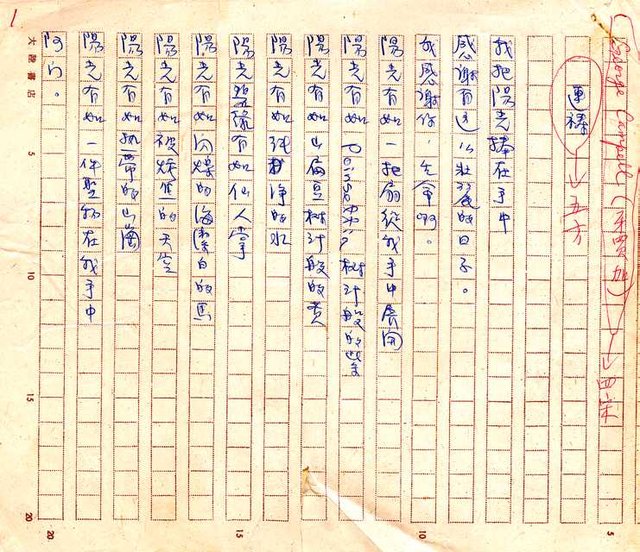 1
George Campbell
連禱
五方
我把陽光捧在手中
感謝有這以壯麗的日子。
我感謝你，生命啊。
陽光有如一把扇從我手中展開
陽光有如 Poinsettia 樹汁般的
陽光有如山扁豆樹汁般的黃
陽光有如純淨的水
陽光碧綠有如仙人掌
陽光有如閃爍的海潔白的馬
陽光有如被烤焦的天空
陽光有如熱帶的山崗
陽光有如一件聖物在我手中
阿门。
大陸書店
5
10
15
20
5
10
15
20